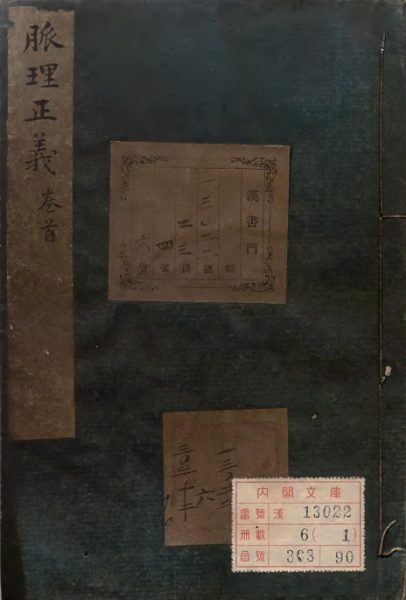 脈理正義 卷首
漢書門
類
號
函
架
冊
一三〇二二
二三
四
六
内閣文庫
番號 漢 13022
册數 6(1)
函號 303 90